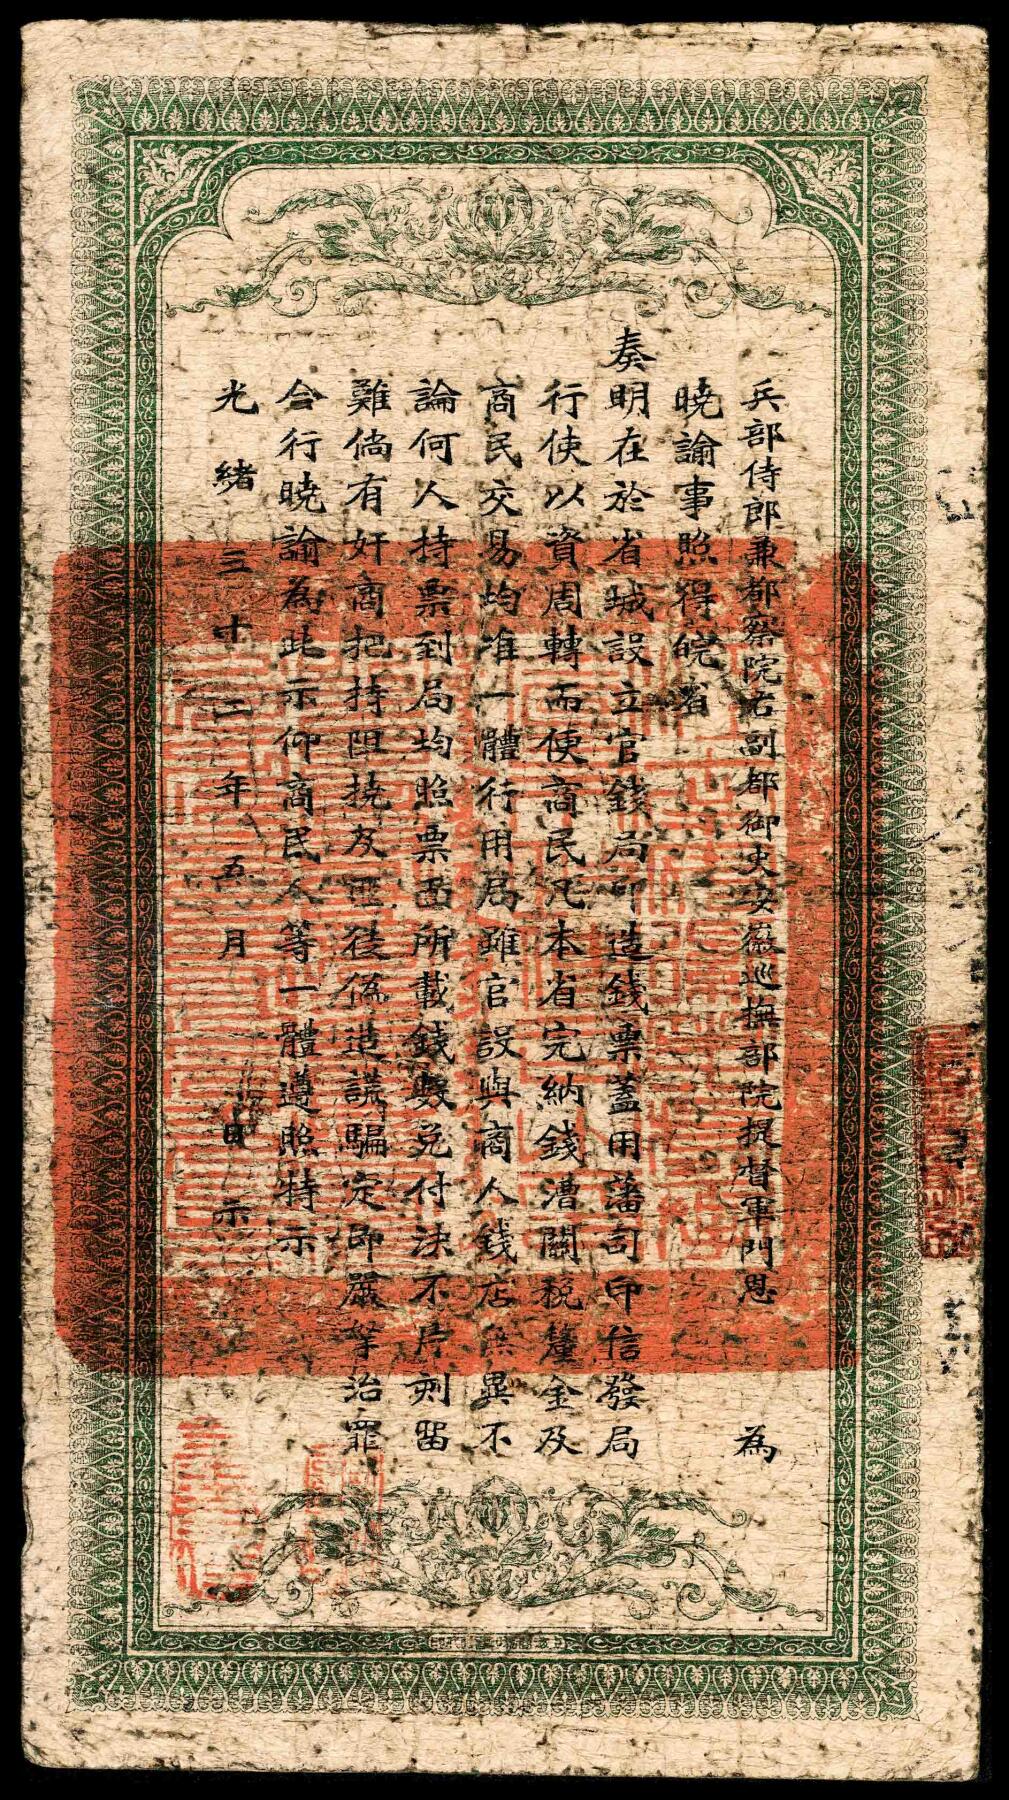 兵部侍郎兼都察院右副都御史安徽巡撫部院提督軍門恩 為
曉諭事照得皖省
奏明在於省城設立官錢局印造錢票蓋用藩司印信發局
行使以資周轉而便商民凡本省完納錢漕關稅釐金及
商民交易均准一體行用局雖官設與商人錢店無異不
論何人持票到局均照票面所載錢數兌付決不片刻留
難倘有奸商把持阻撓及匪徒偽造誆騙定即嚴拏治罪
合行曉諭為此示仰商民人等一體遵照特示
光緒三十二年五月 日示